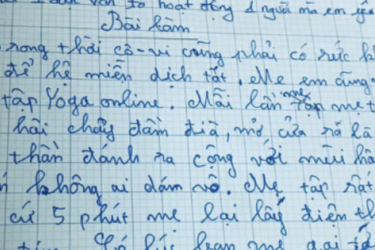 hoạt động 1 người mà em yêu
Bài làm
rong thời cô-vi cũng phải có sức k
để hệ miễn dịch tốt. Mẹ em cũng
tập Yoga online. Mỗi lần mẹ tập mẹ t
hôi chảy đầm đìa, mở cửa ra là
thần đánh ra cộng với mùi hô
không ai dám vô. Mẹ tập rất
cứ 5 phút mẹ lại lấy điện th
lúc bạn mẹ gọi